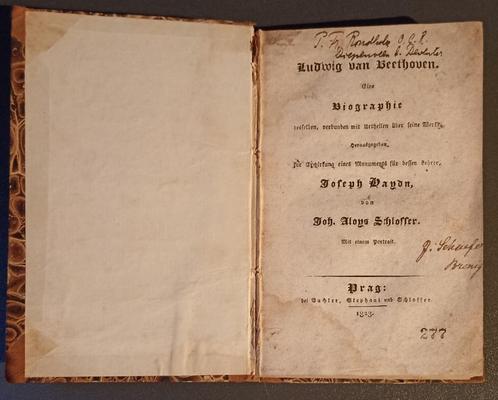 P. Fr. Rondholz O.C.R.
Diepenveen b. Deventer
Ludwig van Beethoven.
Eine
Biographie
desselben, verbunden mit Urtheilen über seine Werke.
Herausgegeben
zur Erwirkung eines Monuments für dessen Lehrer,
Joseph Haydn,
von
Joh. Aloys Schlosser.
Mit einem Portrait.
J. Schaefer
Prag:
bei Buchler, Stephani und Schlosser.
1828.
277